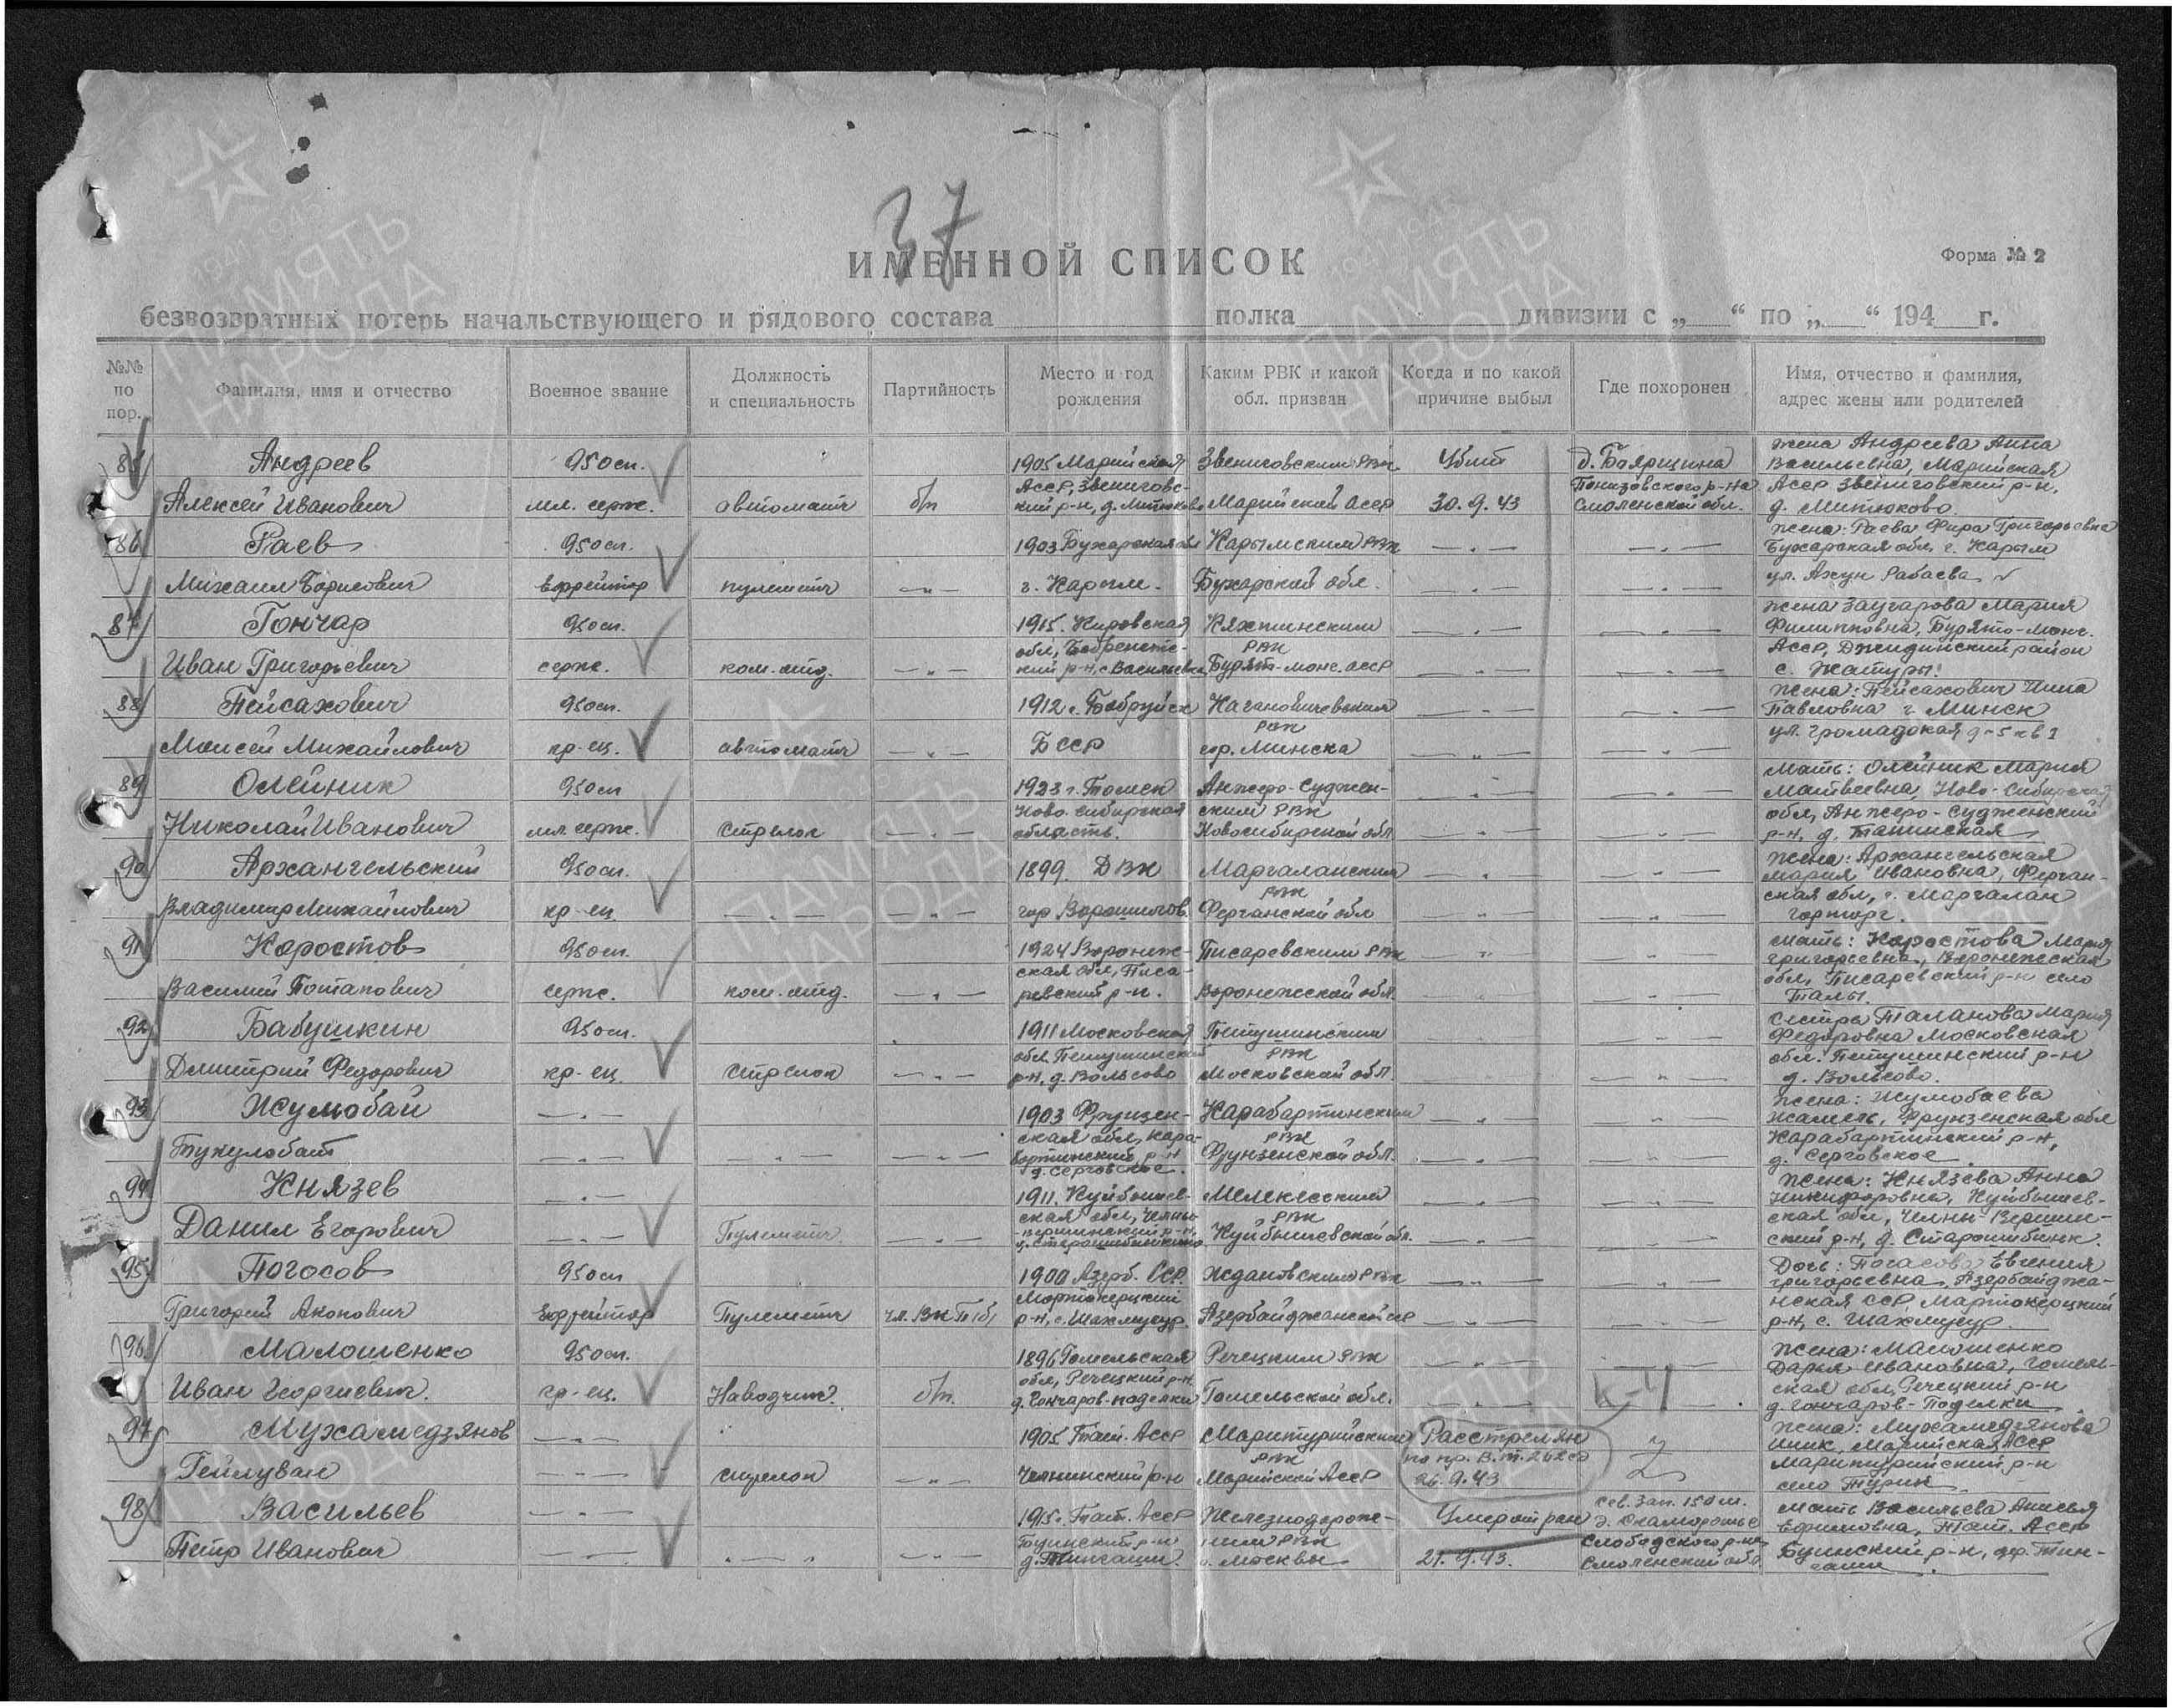 37
ИМЕННОЙ СПИСОК
Форма № 2
безвозвратных потерь начальствующего и рядового состава полка дивизии с „ “ по „ “ 194 г.
№№ по пор.
Фамилия, имя и отчество
Военное звание
Должность и специальность
Партийность
Место и год рождения
Каким РВК и какой обл. призван
Когда и по какой причине выбыл
Где похоронен
Имя, отчество и фамилия, адрес жены или родителей
85 Андреев 950 сп.
Алексей Иванович мл. серж. автоматч б/п
1905 Марийская
АССР, Звениговс-
кий р-н, д. Митюково
Звениговским РВК
Марийской АССР
Убит
30.9.43
д. Боярщина
Понизовского р-на
Смоленской обл.
жена Андреева Анна
Васильевна, Марийская
АССР Звениговский р-н,
д. Митюково
86 Раев 950 сп.
Михаил Борисович ефрейтор пулеметч — „ —
1903 Бухарская обл
г. Карым.
Карымским РВК
Бухарской обл.
— „ —
— „ —
жена: Раева Фира Григорьевна
Бухарская обл, г. Карым
ул. Ахун Рабаева
87 Гончар 950 сп.
Иван Григорьевич серж. ком. отд. — „ —
1915. Кировская
кий р-н, с. Васильевка
Кяхтинским
РВК
Бурят-монг. АССР
— „ —
— „ —
жена Заугарова Мария
Филипповна, Бурято-Монг.
АССР, Джидинский район
с. Жатуры
88 Пейсахович 950 сп.
Моисей Михайлович кр-ец. автоматч — „ —
1912 г. Бобруйск
БССР
Кагановичевским
РВК
гор. Минска
— „ —
— „ —
жена: Пейсахович Нина
Павловна г. Минск
ул. Громадская д-5 кв 1
89 Олейник 950 сп
Николай Иванович мл. серж. стрелок — „ —
1923 г. Томск
Ново-Сибирская
область.
Анжеро-Суджен-
ским РВК
Новосибирской обл
— „ —
— „ —
Мать: Олейник Мария
Матвеевна, Ново-Сибирская
обл, Анжеро-Судженский
р-н, д. Танинская
90 Архангельский 950 сп.
Владимир Михайлович кр-ец. — „ — — „ —
1899. ДВК
гор Ворошилов
Маргаланским
РВК
Ферганской обл
— „ —
— „ —
жена: Архангельская
Мария Ивановна, Ферган-
ская обл, г. Маргалан
горторг.
91 Коростов 950 сп.
Василий Потапович серж. ком. отд. — „ —
1924 Воронеж-
ская обл, Писа-
ревский р-н.
Писаревским РВК
Воронежской обл.
— „ —
— „ —
мать: Коростова Мария
Григорьевна, Воронежская
обл, Писаревский р-н село
Талы.
92 Бабушкин 950 сп.
Дмитрий Федорович кр-ец. стрелок — „ —
1911 Московская
обл Петушинский
р-н, д. Вольсово
Петушинским
РВК
Московской обл.
— „ —
сестра Таланова Мария
Федоровна Московская
обл. Петушинский р-н
д. Вольсово.
93 Жумобай — „ —
Тукулобат — „ — — „ — — „ —
1903 Фрунзен-
ская обл, Кара-
бартинский р-н
д. Серговское.
Карабартинским
РВК
Фрунзенской обл.
— „ —
— „ —
жена: Жумобаева
Жамель, Фрунзенская обл
Карабартинский р-н,
д. Серговское
94 Князев — „ —
Данил Егорович — „ — Пулеметч. — „ —
1911. Куйбышев-
ская обл, Челны-
Вершинский р-н,
Мелекесским
РВК
Куйбышевской обл.
— „ —
— „ —
жена: Князева Анна
Никифоровна, Куйбышев-
ская обл, Челны-Вершин-
ский р-н, д. Старошибинк.
95 Погосов 950 сп
Григорий Акопович Ефрейтор Пулеметч чл. ВКП(б)
1900 Азерб. ССР
Мартокерцкий
р-н, с. Шахмусур.
Ждановским РВК
Азербайджанской ССР
— „ —
— „ —
Дочь: Погасова Евгения
Григорьевна, Азербайджа-
нская ССР Мартокерцкий
р-н, с. Шахмусур
96 Малошенко 950 сп.
Иван Георгиевич. кр-ец. Наводчик. б/п.
1896 Гомельская
обл, Речецкий р-н
д. Гончаров-поделки
Речецким РВК
Гомельской обл.
— „ —
— „ —
жена: Малошенко
Дарья Ивановна, Гомель-
ская обл, Речецкий р-н
д. Гончаров-Поделки
97 Мухамедзянов — „ —
Гейлуван — „ — стрелок — „ —
1905 Тат. АССР
Челнинский р-н
Маритурийским
РВК
Марийской АССР
Расстрелян
по пр. В.Т. 262 сд
26.9.43
Z
жена: Мухамедзянова
Марийская АССР
Маритурийский р-н
село Турек
98 Васильев — „ —
Петр Иванович — „ — — „ — — „ —
1915 г. Тат. АССР
Буинский р-н
д. Тингаши.
Железнодорож-
ным РВК
г. Москвы
Умер от ран
21.9.43.
сев. зап. 150 м.
д. Скоморошье
Слободского р-на
Смоленской обл.
мать Васильева Анисья
Ефимовна, Тат. АССР
Буинский р-н, дер. Тин-
гаши.
ПАМЯТЬ НАРОДА
1941 1945